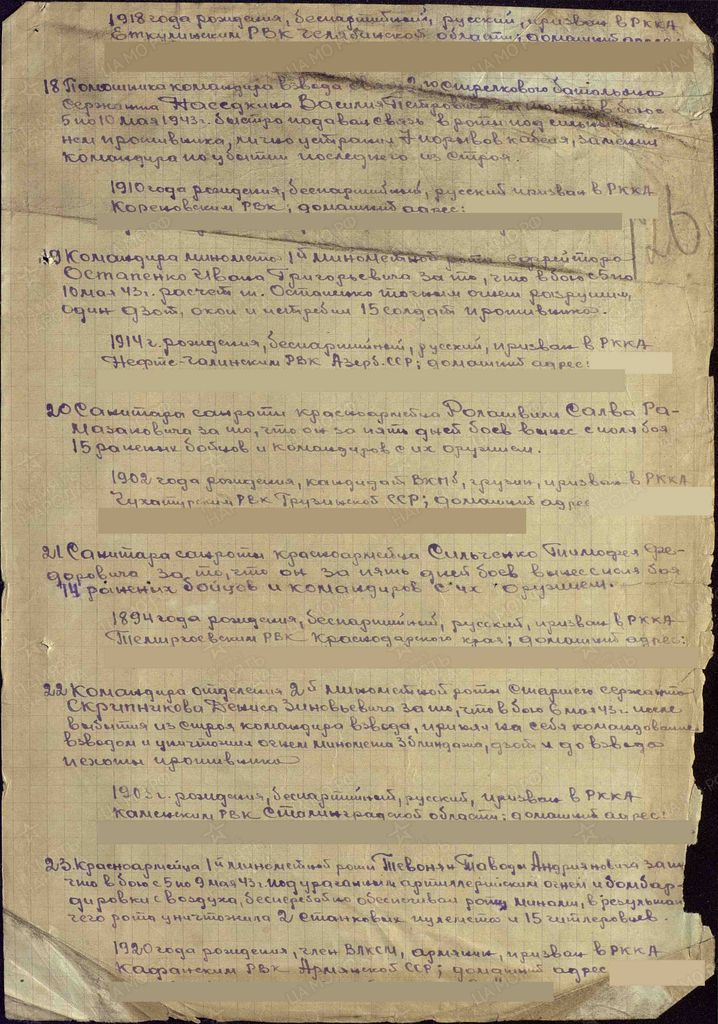 1918 года рождения, беспартийный, русский, призван в РККА
Еткулинским РВК Челябинской области; домашний адрес:
18 Помощника командира взвода связи 2го стрелкового батальона
сержанта Наседкина Василия Петровича за то, что в бою с
5 по 10 мая 1943г. быстро подавал связь в роты под сильным ог-
нем противника, лично устранил 7 порывов кабеля, заменил
командира по убытии последнего из строя.
1910 года рождения, беспартийный, русский призван в РККА
Кореновским РВК; домашний адрес:
126
19 Командира миномета 1й минометной роты ефрейтора
Остапенко Ивана Григорьевича за то, что в бою с 5 по
10 мая 43г. расчет т. Остапенко точным огнем разрушил
один дзот, окоп и истребил 15 солдат противника.
1914 г. рождения, беспартийный, русский, призван в РККА
Нефте-Чалинским РВК Азерб. ССР; домашний адрес:
20 Санитара санроты красноармейца Ролашвили Салва Ра-
мазановича за то, что он за пять дней боев вынес с поля боя
15 раненых бойцов и командиров с их оружием.
1902 года рождения, кандидат ВКПб, грузин, призван в РККА
РВК Грузинской ССР; домашний адрес
21 Санитара санроты красноармейца Сильченко Тимофея Фе-
доровича за то, что он за пять дней боев вынес с поля боя
14 раненых бойцов и командиров с их оружием.
1894 года рождения, беспартийный, русский, призван в РККА
Темиргоевским РВК Краснодарского края; домашний адрес:
22 Командира отделения 2й минометной роты старшего сержанта
Скрипникова Дениса Зиновьевича за то, что в бою 6 мая 43г. после
выбытия из строя командира взвода, принял на себя командование
взводом и уничтожил огнем миномета 3 блиндажа, дзот и до взвода
пехоты противника
г. рождения, беспартийный, русский, призван в РККА
Каменским РВК Сталинградской области; домашний адрес:
23. Красноармейца 1й минометной роты Тевонян Тавода Андрияновича за то
что в бою с 5 по 9 мая 43г. под ураганным артиллерийским огнем и бомбар-
дировки с воздуха, бесперебойно обеспечивал роту минами, в результате
чего рота уничтожила 2 станковых пулемета и 15 гитлеровцев.
1920 года рождения, член ВЛКСМ, армянин, призван в РККА
Кафанским РВК Армянской ССР; домашний адрес